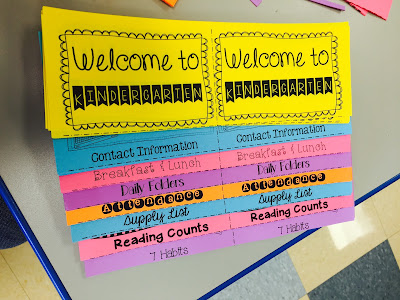 Welcome to Welcome to
KINDERGARTEN KINDERGARTEN
Contact Information Contact Information
Breakfast & Lunch Breakfast & Lunch
Daily Folders Daily Folders
Attendance Attendance
Supply List Supply List
Reading Counts Reading Counts
7 Habits 7 Habits